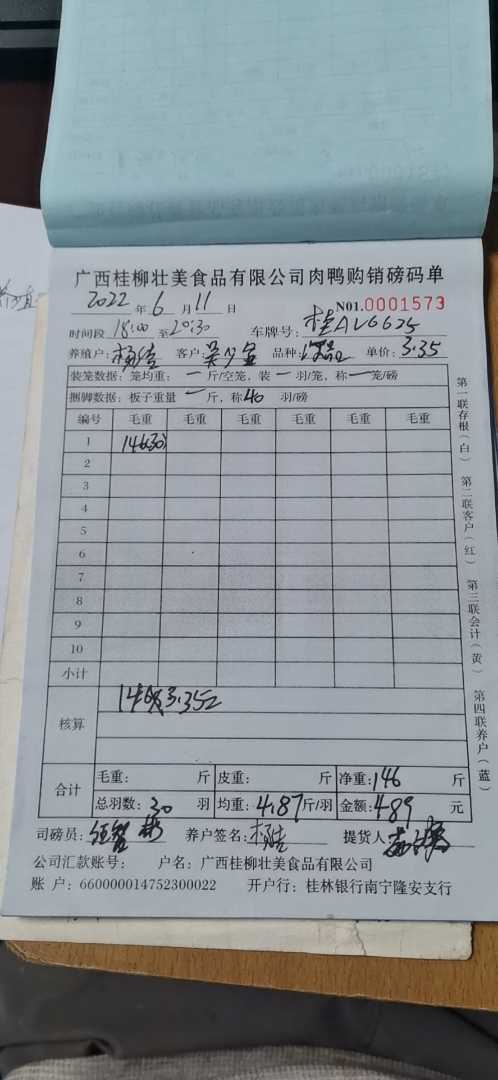 广西桂柳壮美食品有限公司肉鸭购销磅码单
2022 年 6 月 11 日 N01.0001573
时间段 18:00 至 20:30 车牌号: 桂AVG625
养殖户: 客户: 品种: 单价: 3.35
装笼数据: 笼均重: 一 斤/空笼, 装 一 羽/笼, 称 一 笼/磅
捆脚数据: 板子重量 一 斤, 称 40 羽/磅
编号 毛重 毛重 毛重 毛重 毛重 毛重
1 146(30)
2
3
4
5
6
7
8
9
10
小计
核算 146×3.35=
合计 毛重: 斤 皮重: 斤 净重: 146 斤
总羽数: 30 羽 均重: 4.87 斤/羽 金额: 489 元
司磅员: 养户签名: 提货人
公司汇款账号: 户名: 广西桂柳壮美食品有限公司
账 户: 660000014752300022 开户行: 桂林银行南宁隆安支行
第一联存根(白) 第二联客户(红) 第三联会计(黄) 第四联养户(蓝)